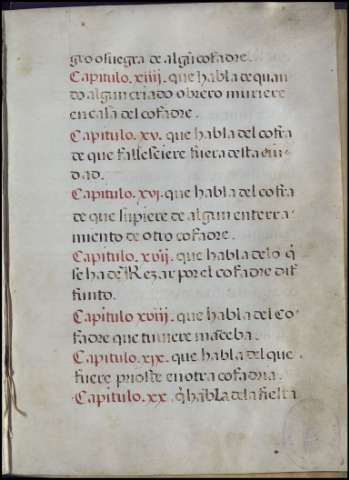 gro o suegra de algũ cofadre.
Capitulo. xiiii. que habla de quan-
do algun criado obrero muriere
en casa del cofadre.
Capitulo. xv. que habla del cofra
de que fallesciere fuera desta ciu-
dad.
Capitulo. xvi. que habla del cofra
de que supiere de algun enterra
miento de otro cofadre.
Capitulo. xvii. que habla de lo q̃
se ha de Rezar por el cofadre dif
funto.
Capitulo xviii. que habla del co-
fadre que tuviere māceba.
Capitulo. xix. que habla del que.
fuere prioste en otra cofadria.
Capitulo. xx. q̃ habla de la fiesta